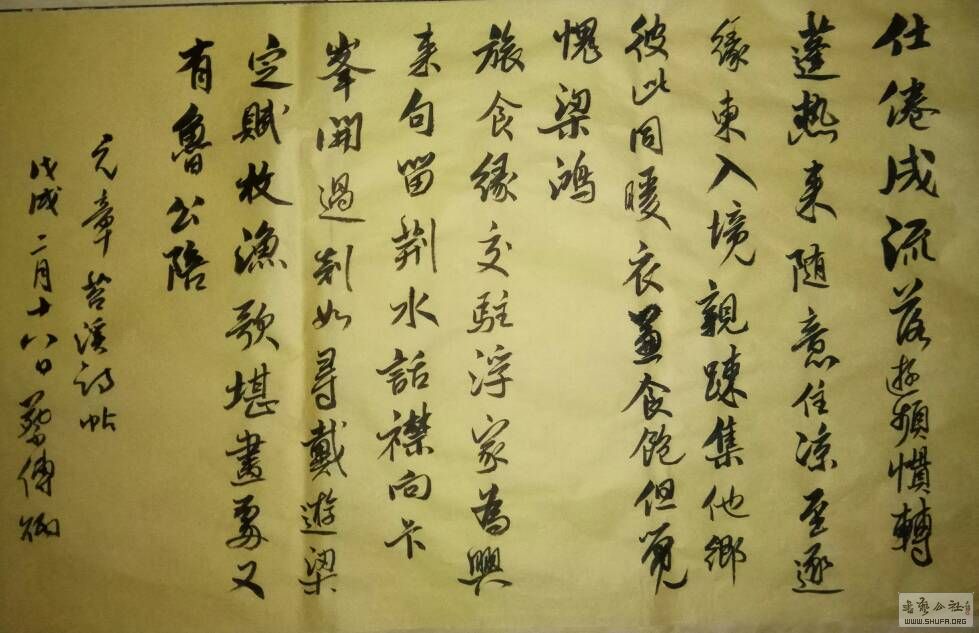 仕倦成流落遊頻慣轉
蓬熱来随意住凉至逐
緣東入境親疎集他鄉
彼此同暖衣兼食飽但覺
愧梁鴻
旅食緣交駐浮家為興
来句留荆水話襟向卞
峯開過剡如尋戴遊梁
定賦枚漁歌堪畫處又
有魯公陪
元章苕溪詩帖
戊戌二月十八日
書藝公社
WWW.SHUFA.ORG